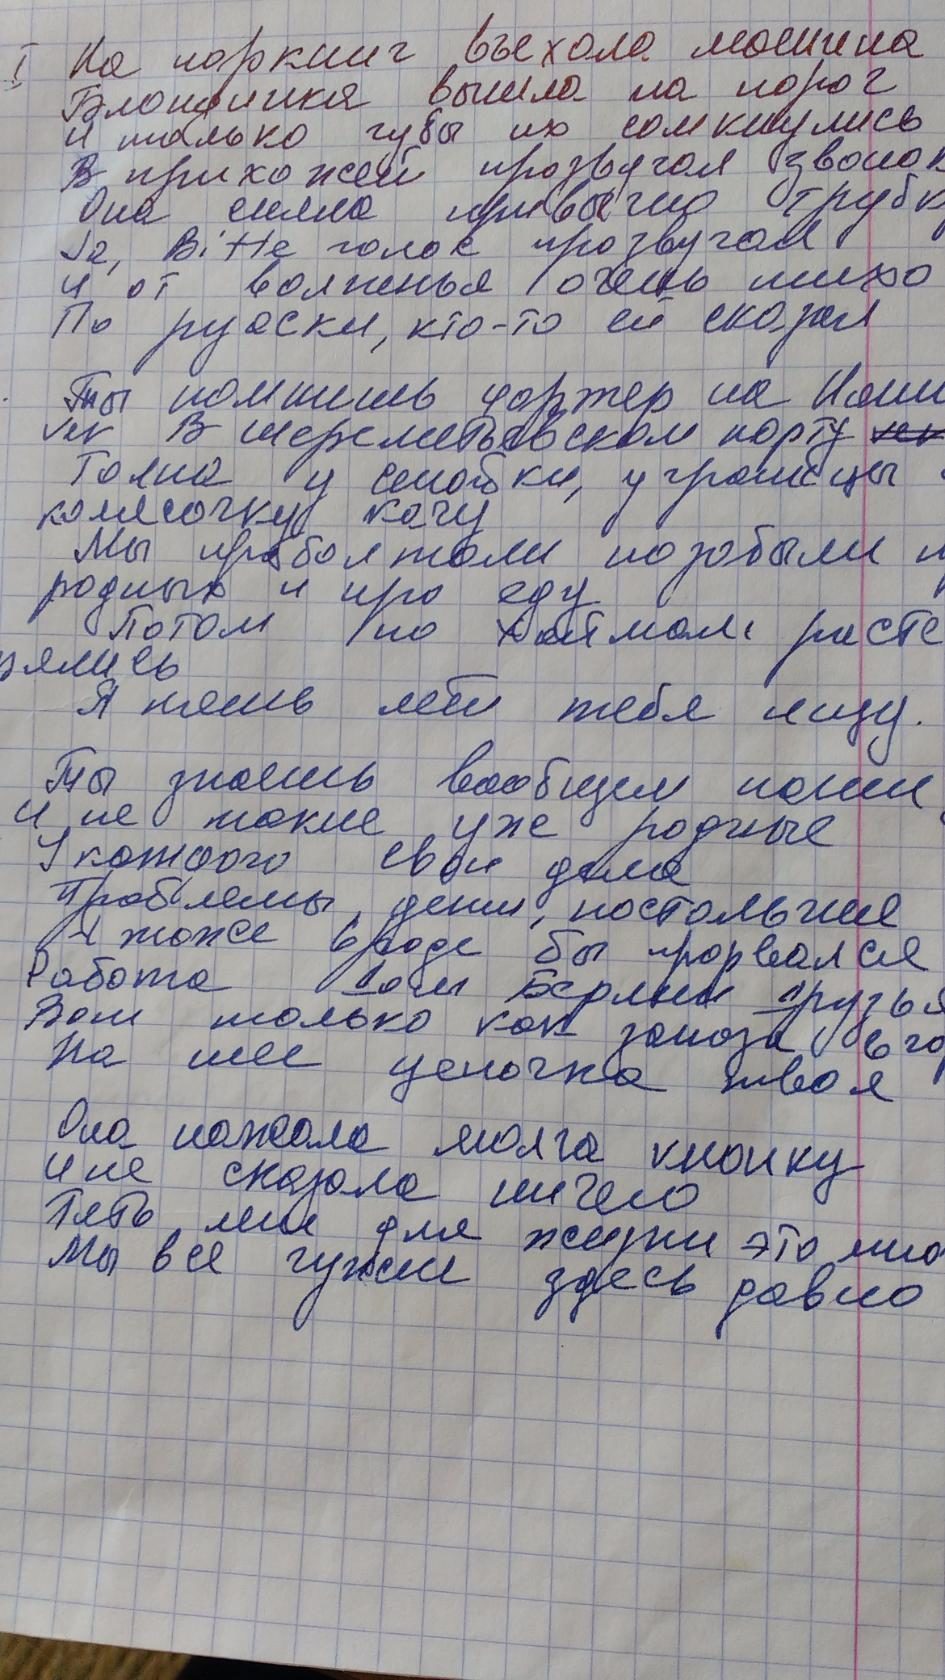 I На паркинг въехала машина
Блондинка вышла на порог
И только губы их сомкнулись
В прихожей прозвучал звонок
Она сняла привычно трубк
Ja, Bitte голос прозвучал
И от волненья очень тихо
По русски, кто-то ей сказал
Ты помнишь чартер на
В шереметьевском порту
Толпа у стойки, у границы
колясочку качу
Мы проболтали позабыли п
родных и про еду
Потом по хаймам расте
рялись
Я пять лет тебя ищу.
Ты знаешь вообщем наши
И не такие уже родные
У каждого свои дела
Проблемы, дети, постольные
Я тоже вроде бы прорвался
Работа дом Берлин друзья
Вот только как заноза в го
На шее цепочка твоя
Она нажала молча кнопку
И не сказала ничего
Пять лет для жизни это мно
Мы все чужие здесь давно